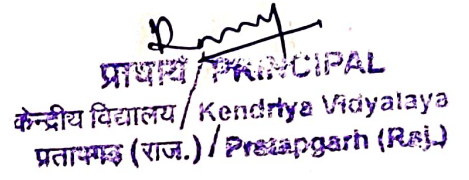 प्राचार्य / PRINCIPAL
केन्द्रीय विद्यालय / Kendriya Vidyalaya
प्रतापगढ़ (राज.) / Pratapgarh (Raj.)